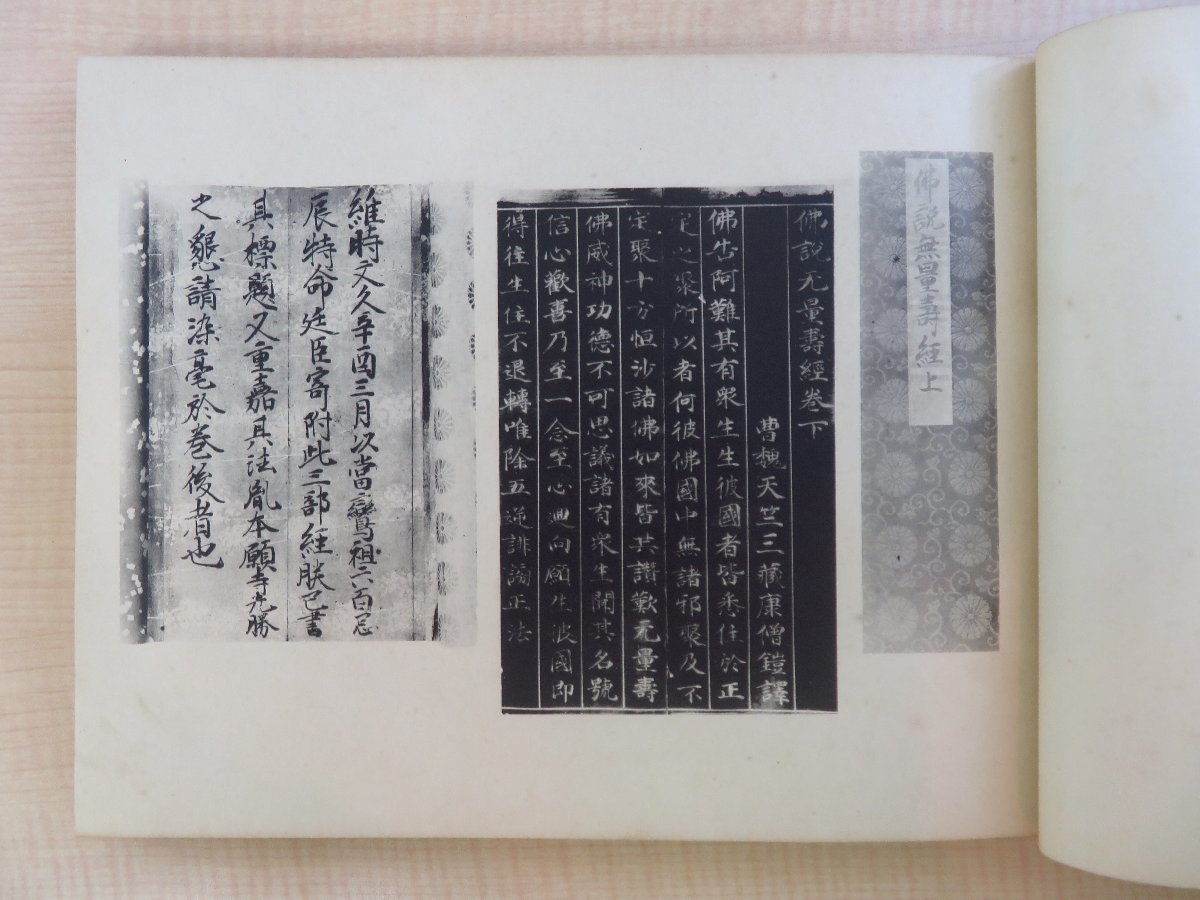 佛說無量壽經上
佛說无量壽經卷下
曹魏天竺三藏康僧鎧譯
佛告阿難其有衆生生彼國者皆悉住於正
定之聚所以者何彼佛國中無諸邪聚及不
定聚十方恒沙諸佛如來皆共讚歎无量壽
佛威神功德不可思議諸有衆生聞其名號
信心歡喜乃至一念至心迴向願生彼國即
得往生住不退轉唯除五逆誹謗正法
維時文久辛酉三月以當鸞祖六百忌
辰特命廷臣寄附此三部經朕已書
其標題又重嘉其法胤本願寺光勝
之懇請染毫於卷後者也